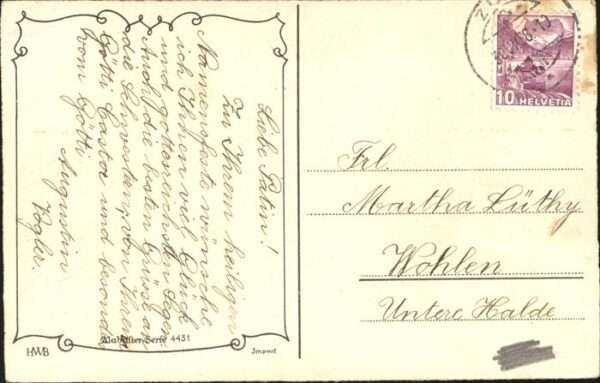 Liebe Patin!
Zu Ihrem heiligen
Namensfeste wünsche
ich Ihnen viel Glück
und gottesreichsten Segen
Auch die besten Grüsse an
die Schwestern, von Ihrem
Götti Casta und besonders
vom Götti
Augustin
Vogler.
Alabaster-Serie 4431
HWB
Import
10 HELVETIA
Frl.
Martha Lüthy
Wohlen
Untere Halde